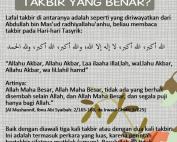 TAKBIR YANG BENAR?
Lafal takbir di antaranya adalah seperti yang diriwayatkan dari
Abdullah bin Mas'ud radhiyallahu'anhu, beliau membaca
takbir pada Hari-hari Tasyriq:
الله أكبر الله أكبر لا إله إلا الله والله أكبر الله أكبر ولله الحمد
"Allahu Akbar, Allahu Akbar, Laa ilaaha illallah, wallahu Akbar,
Allahu Akbar, wa lillahil hamd"
Artinya:
Allah Maha Besar, Allah Maha Besar, tidak ada yang berhak
disembah selain Allah, dan Allah Maha Besar, dan segala puji
hanya bagi Allah."
Baik dengan diawali tiga kali takbir atau dengan dua kali takbir.
Ini adalah termasuk perkara yang luas, karena perintah